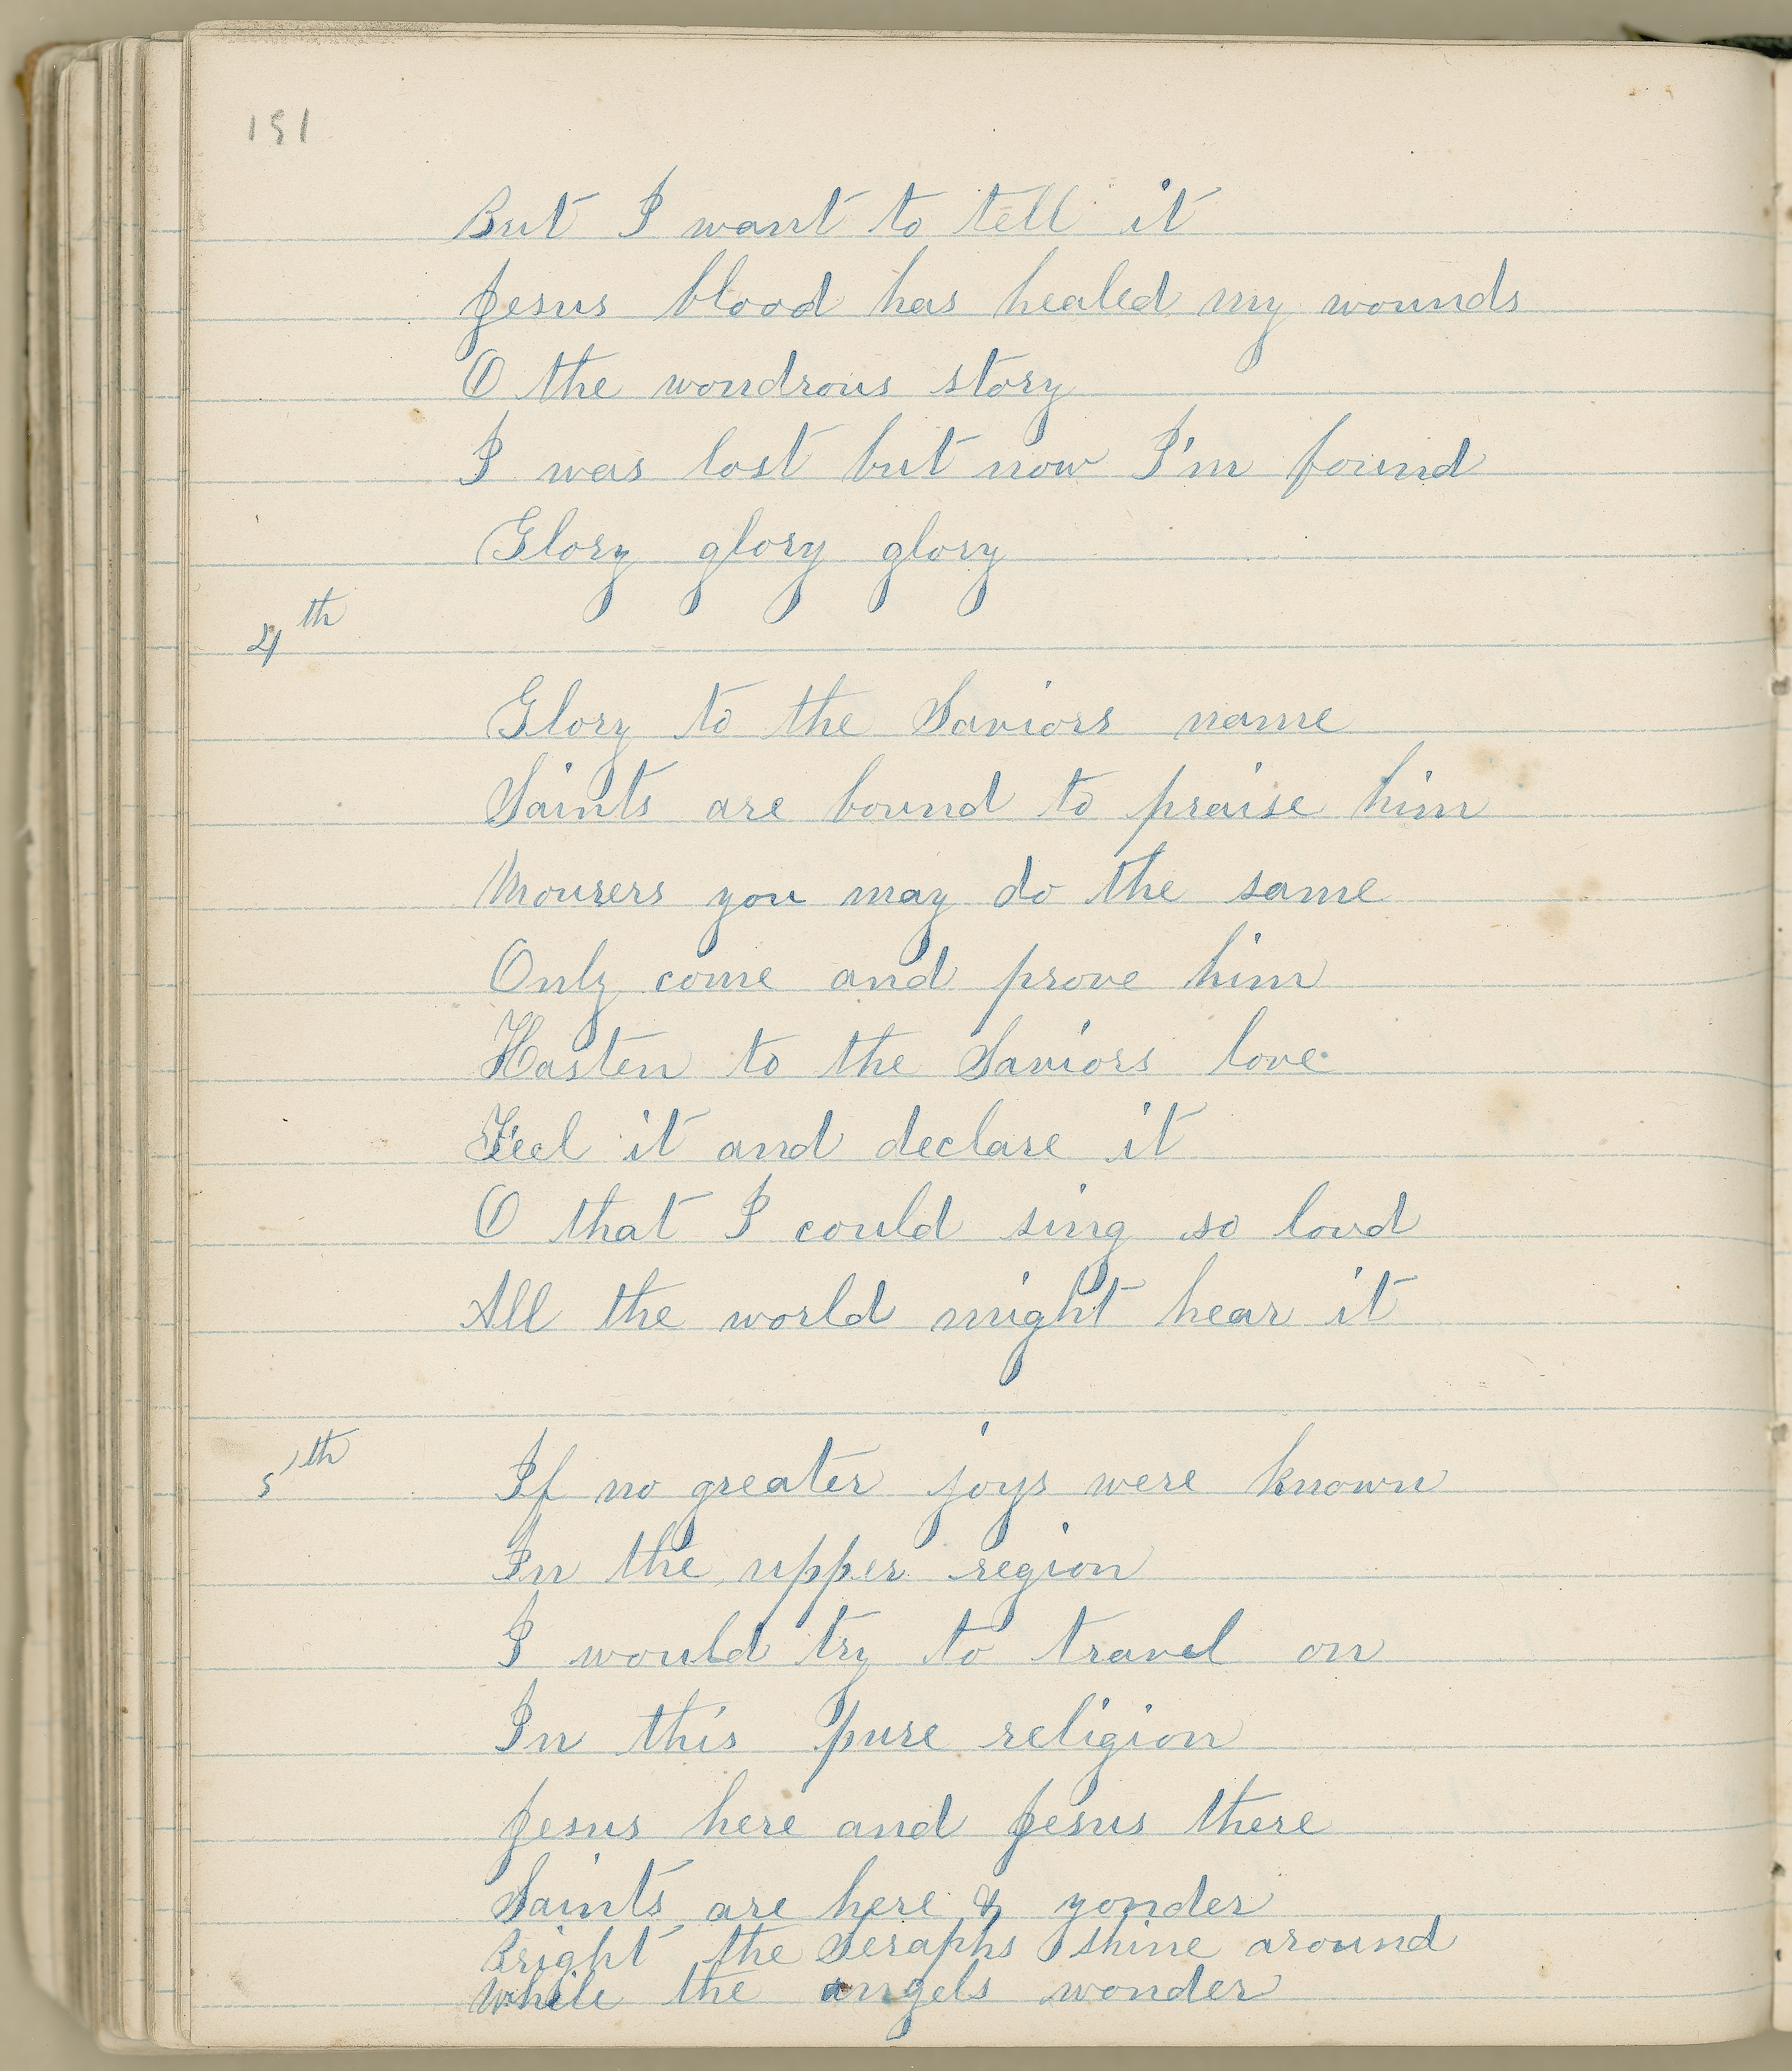 151
But I want to tell it
Jesus blood has healed my wounds
O the wondrous story
I was lost but now I'm found
Glory glory glory
4th
Glory to the Saviors name
Saints are bound to praise him
Mourers you may do the same
Only come and prove him
Hasten to the Saviors love
Feel it and declare it
O that I could sing so loud
All the world might hear it
5th If no greater joys were known
In the upper region
I would try to travel on
In this pure religion
Jesus here and Jesus there
Saints are here & yonder
Bright the Seraphs shine around
While the angels wonder